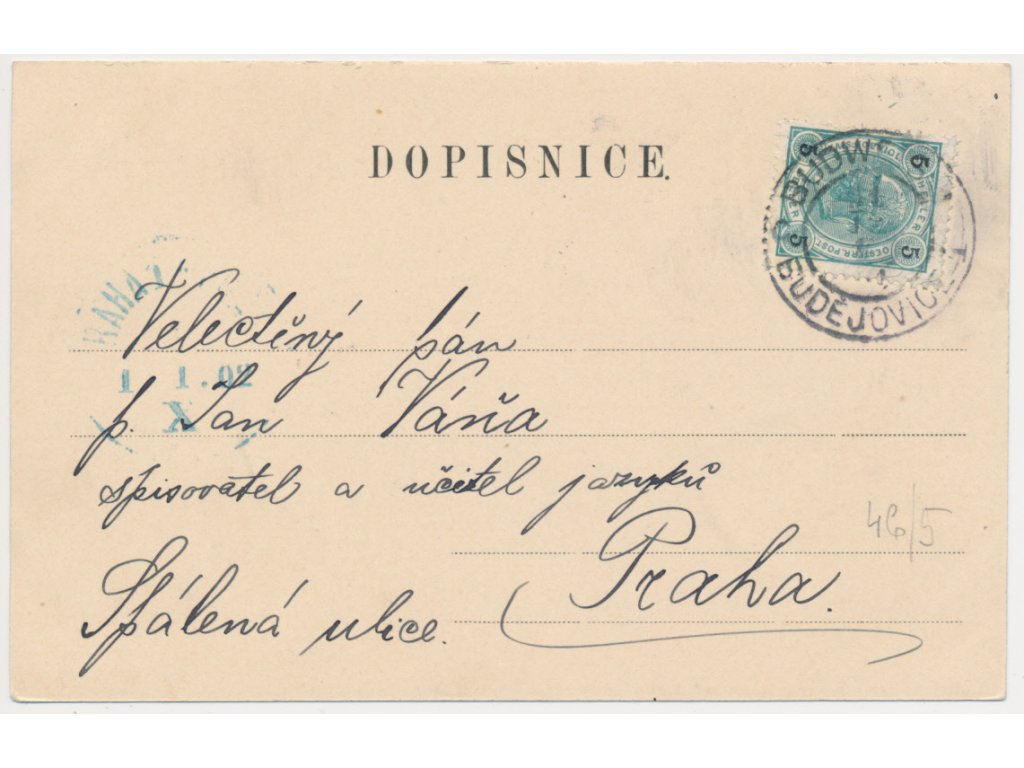 DOPISNICE.
5 5
HELLER
OESTERR. POST.
5 5
BUDW
BUDĚJOVICE
PRAHA
1 1.02
X
Velectěný pán
p. Jan Váňa
spisovatel a učitel jazyků
46/5
Praha.
Spálená ulice.